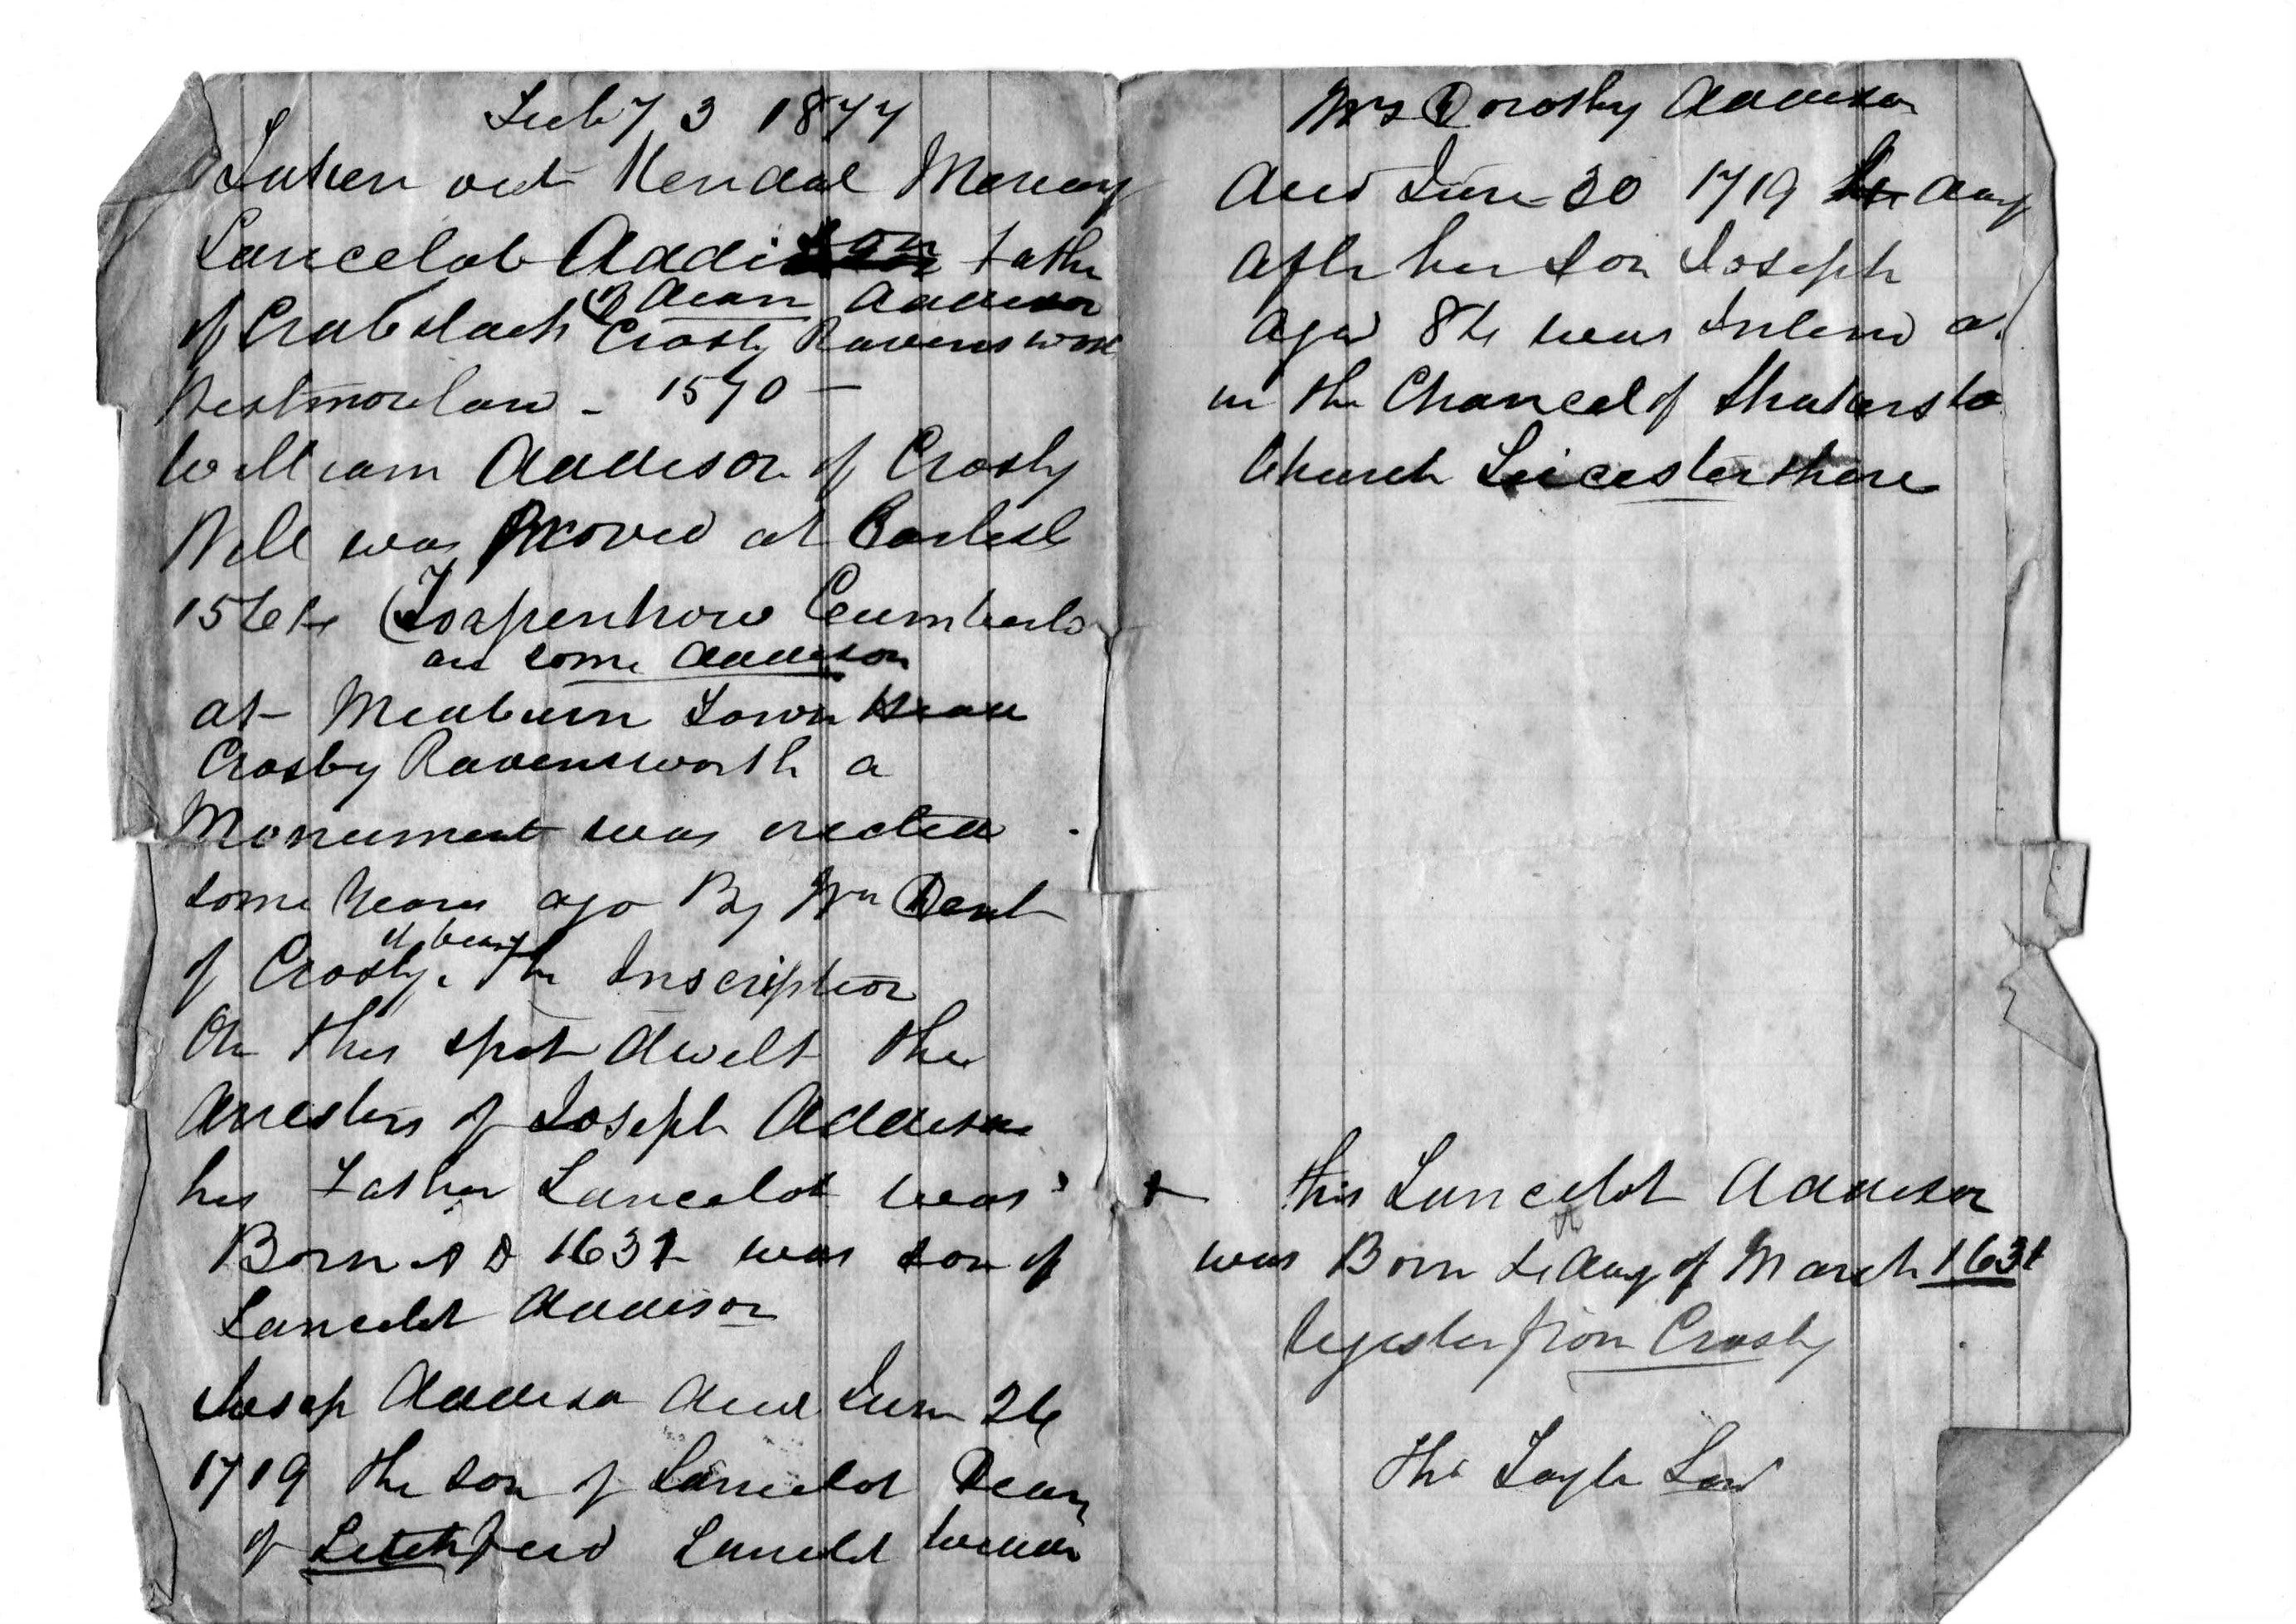 July 3 1877
Taken out Kendal Mercury
Lancelot Addison Father
of Dean Addison
of Crabstack Crosby Ravensworth
Westmorland - 1570 -
William Addison of Crosby
Will was Proved at Carlisle
1564 (Torpenhow Cumberla
are some Addison
at Meaburn Town Head
Crosby Ravensworth a
Monument was erected
some years ago By Wm Dent
of Crosby. it bears the Inscription
On this spot dwelt the
Ancesters of Joseph Addison
his Father Lancelot was
Born A D 1632 was son of
Lancelot Addison
Josep Addison died June 26
1719 the son of Lancelot Dean
of Litchfeid Lancelot
Mrs Dorothy Addison
died June 30 1719 4 day
after her son Joseph
aged 84 was Intered
in the Chancel of Shakersto
Church Leicestershire
this Lancelot Addison
was Born 4 day of March 1631
register from Crosby